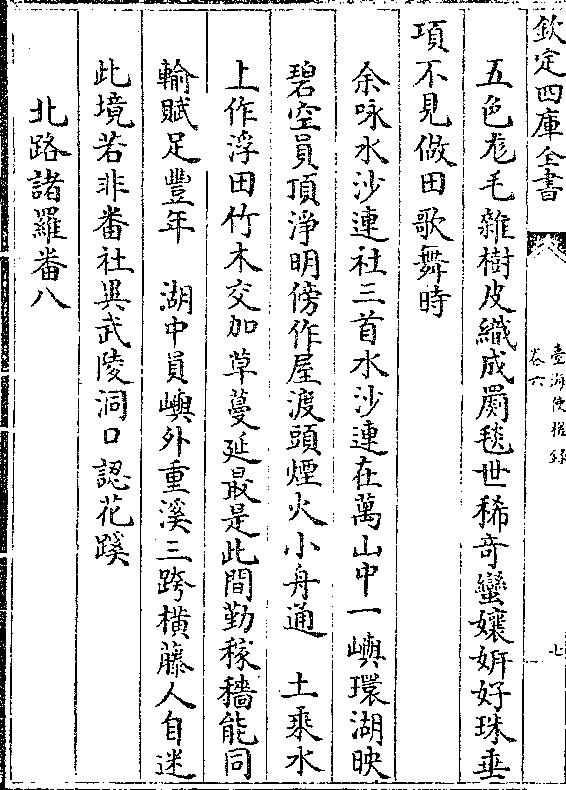 欽定四庫全書
臺海使槎錄
卷六
七
五色尨毛雜樹皮織成罽毯世稀奇蠻孃妍好珠垂
項不見做田歌舞時
余咏水沙連社三首水沙連在萬山中一嶼環湖映
碧空員頂淨明傍作屋渡頭煙火小舟通　土乘水
上作浮田竹木交加草蔓延最是此間勤稼穡能同
輸賦足豐年　湖中員嶼外重溪三跨横藤人自迷
此境若非番社異武陵洞口認花蹊
北路諸羅番八